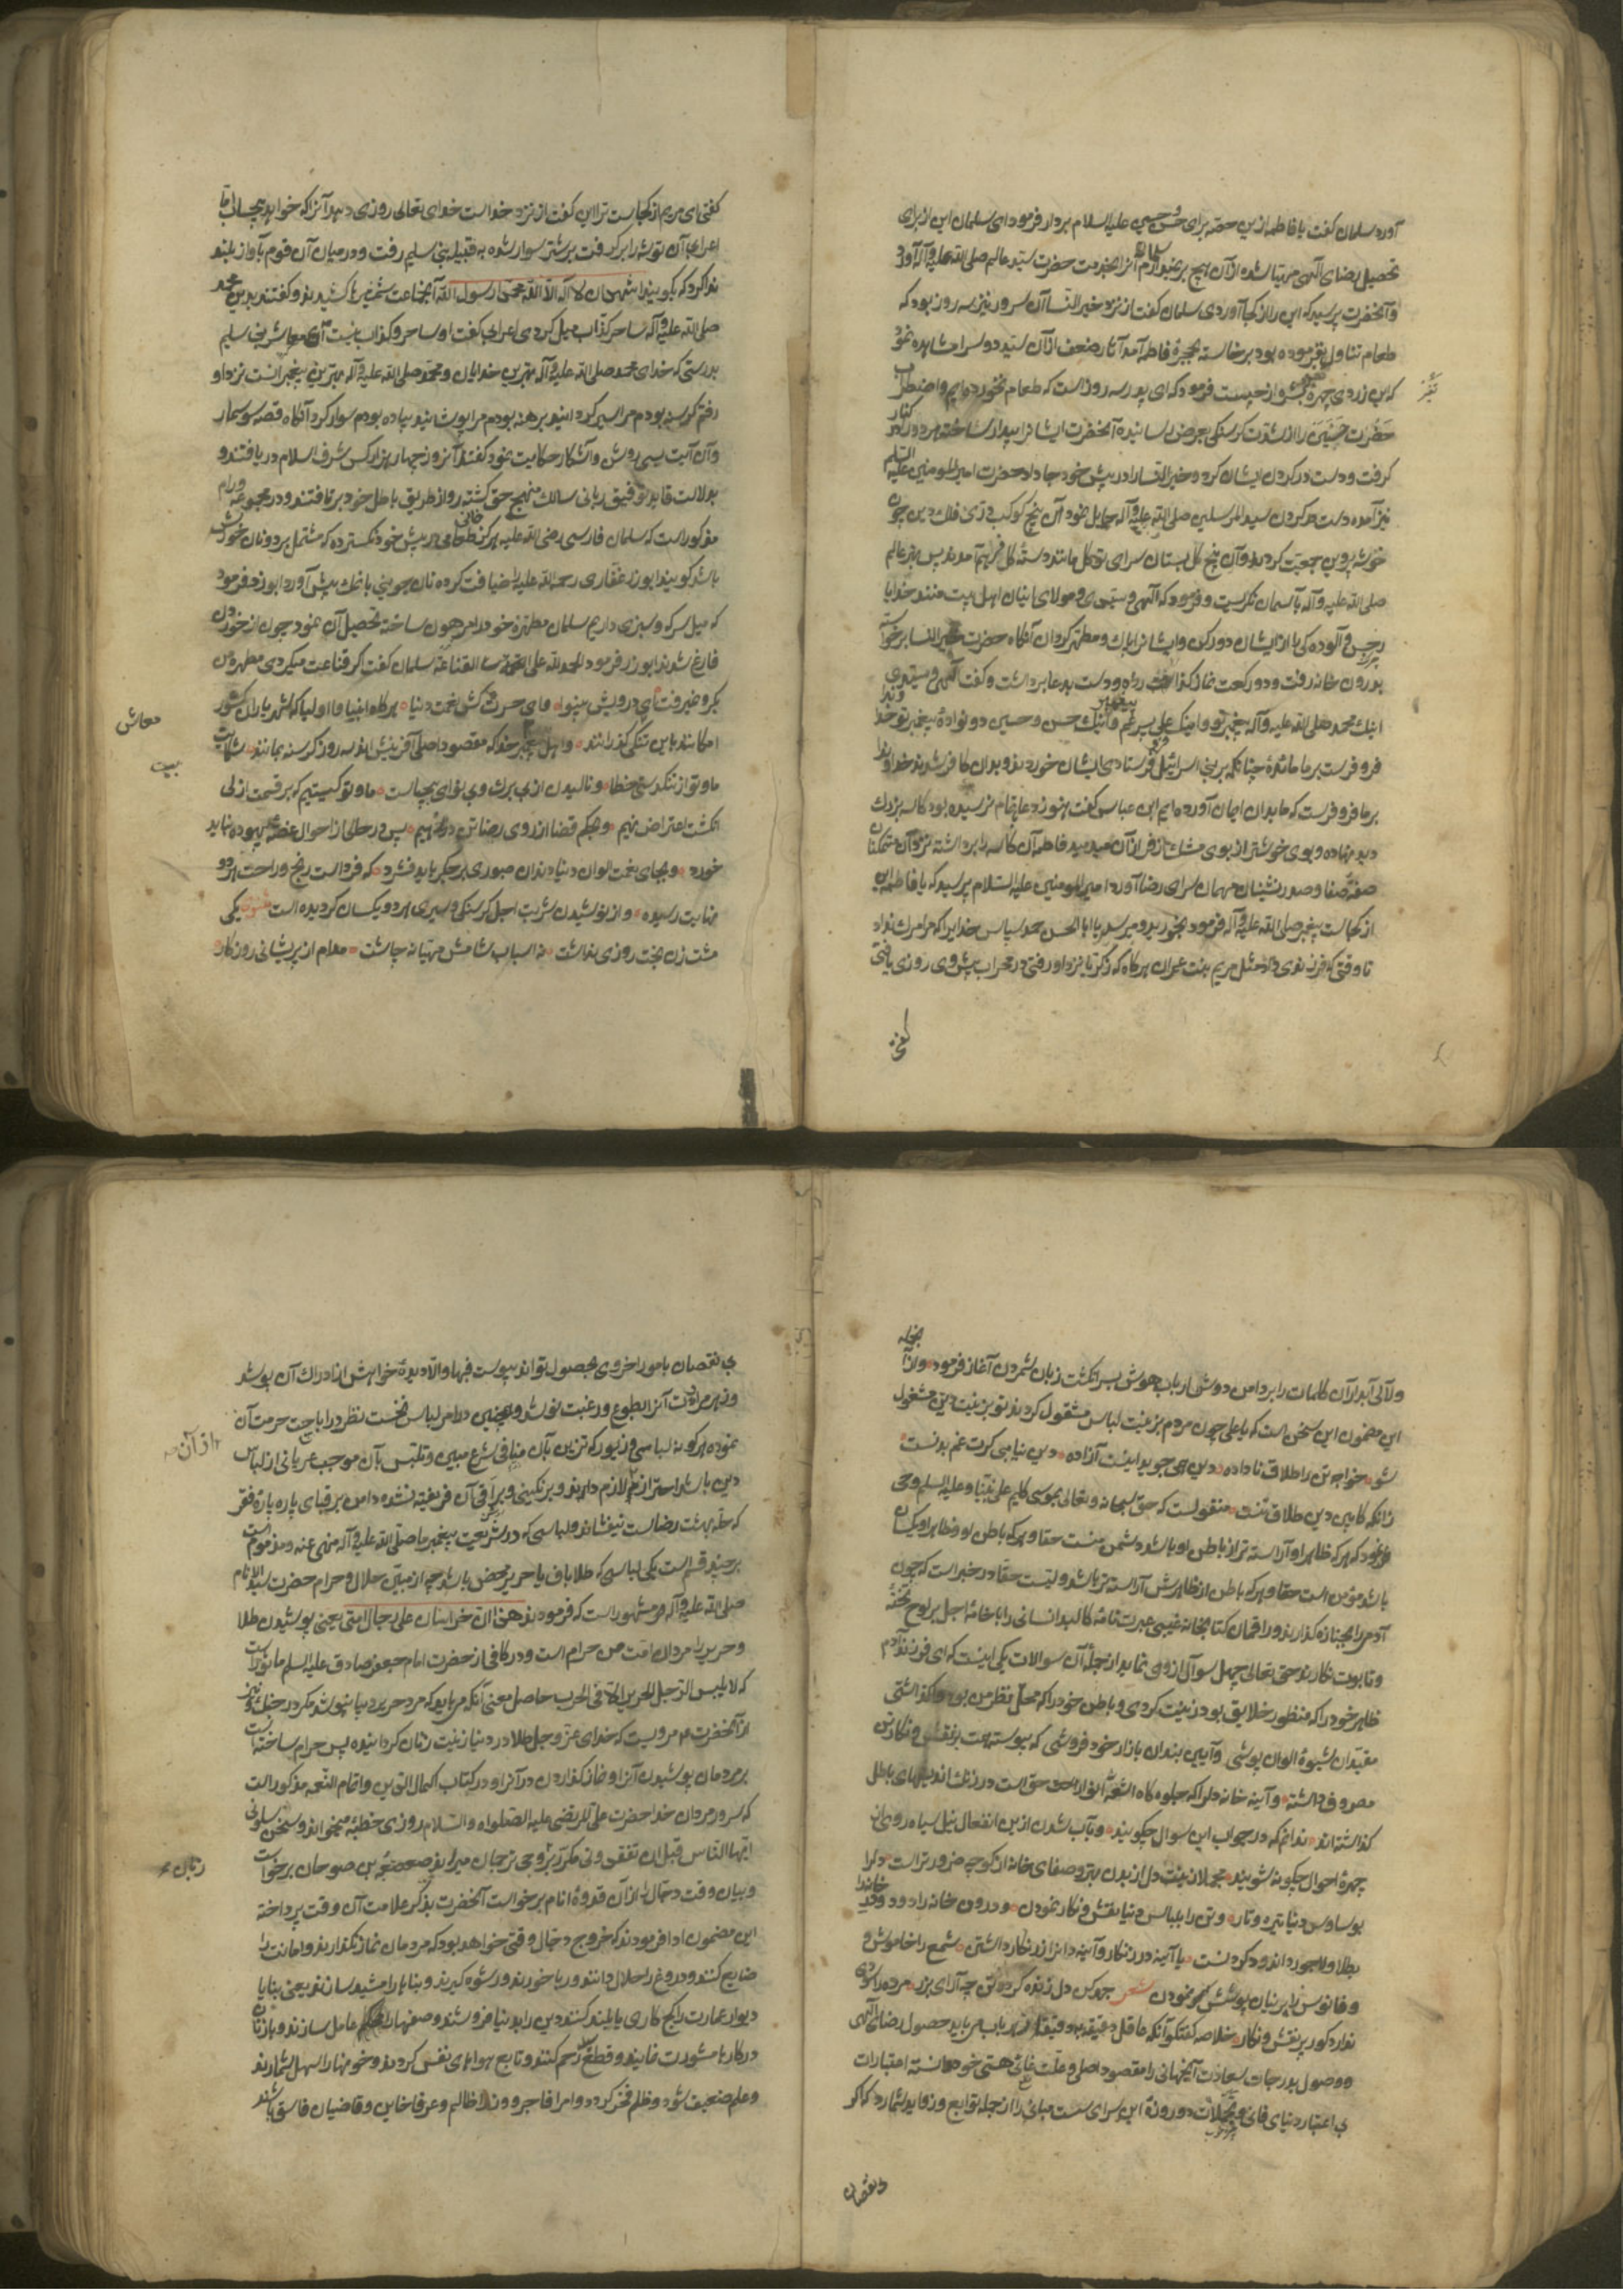 آورد سلمان گفت یا فاطمه ازین حصه برای حسن و حسین علیه السلام بردار فرمود ای سلمان این از برای
تحصیل رضای الهی مهیا شده از آن هیچ بر نمیدارم سلمان آنرا بخدمت حضرت سید عالم صلی الله علیه و آله آورد
و آنحضرت پرسید که این را از کجا آوردی سلمان گفت از نزد خیر النسا آن سرور نیز سه روز بود که
طعام تناول نفرموده بود برخاسته بحجرهٔ فاطمه آمد آثار ضعف از آن سیده دو سرا مشاهده نمود
که این زردی چهره و تغیر از چیست فرمود که ای پدر سه روز است که طعام نخورده‌ایم و اضطراب
حضرت حسنین را از شدت گرسنگی بعرض رسانیده آنحضرت ایشانرا بیدار ساخته هر دو را در کنار
گرفت و دست در گردن ایشان کرد و خیر النسا را در پیش خود جا داد حضرت امیر المومنین علیه السلم
نیز آمده دست در گردن سید المرسلین صلی الله علیه و آله حمایل نمود آن پنج کوکب دری فلک دین چون
خوشه پروین جمعیت کردند و آن پنج گل بستان سرای توکل مانند دسته گل فراهم آمدند پس مهتر عالم
صلی الله علیه و آله بآسمان نگریست و فرمود که الهی و سیدی و مولای اینان اهل بیت منند خدایا
رجس و آلودگی را از ایشان دور کن و ایشانرا پاک و مطهر گردان آنگاه حضرت خیر النسا برخواسته
بدرون خانه رفت و دو رکعت نماز گذاشت و دست بدعا برداشت و گفت الهی و سیدی
اینک محمد صلی الله علیه و آله پیغمبر تو و اینک علی پسر عم پیغمبر و اینک حسن و حسین دو نوادهٔ پیغمبر تو خداوندا
فرو فرست بر ما مائدهٔ چنانکه بر بنی اسرائیل فرستادی ایشان خوردند و بدان کافر شدند خداوندا
بر ما فرو فرست که ما بدان ایمان آورده‌ایم ابن عباس گفت هنوز دعا باتمام نرسیده بود کاسه بزرگ
دید نهاده و بوی خوشتر از بوی مشک از فراز آن میدمید فاطمه آن کاسه را برداشته نزد آن متمکنان
صفهٔ صفا و صدرنشینان مهمان سرای رضا آورد امیر المومنین علیه السلام پرسید که یا فاطمه این
از کجاست پیغمبر صلی الله علیه و آله فرمود بخورید و مپرسید یا ابا الحسن حمد و سپاس خدایرا که مرا مرگ نداد
تا وقتی که فرزندی داد مثل مریم بنت عمران هرگاه که زکریا نزد او رفتی در محراب پیش وی روزی یافتی
گفتی
گفتی ای مریم از کجاست ترا این گفت از نزد خداست خدای تعالی روزی دهد آنرا که خواهد بیحساب
اعرابی آن توشه را برگرفت بر شتر سوار شده به قبیله بنی سلیم رفت و در میان آن قوم بآواز بلند
ندا کرد که بگویید اشهد ان لا اله الا الله محمد رسول الله آنجماعت شمشیرها کشیدند و گفتند بدین محمد
صلی الله علیه و آله ساحر کذاب میل کردی اعرابی گفت او ساحر و کذاب نیست ای معاشر بنی سلیم
بدرستی که خدای محمد صلی الله علیه و آله بهترین خدایان و محمد صلی الله علیه و آله بهترین پیغمبرانست نزد او
رفتم گرسنه بودم مرا سیر گردانید برهنه بودم مرا پوشانید پیاده بودم سوار کرد آنگاه قصه سوسمار
و آن آیت روشن و آشکار حکایت نمود گفتند آنروز چهار هزار کس شرف اسلام دریافتند و
بدلالت قاید توفیق ربانی سالک منهج حق گشته رو از طریق باطل خود برتافتند و در مجموعه ورام
مذکور است که سلمان فارسی رضی الله علیه هرگز خوانی در پیش خود نگسترده که مشتمل بر دو نان خورش
باشد گویند ابوذر غفاری رحمه الله علیه را ضیافت کرده نان جوینی با نمک پیش آورد ابوذر فرمود
که میل سرکه و سبزی داریم سلمان مطهرهٔ خود را مرهون ساخته تحصیل آن نمود چون از خوردن
فارغ شدند ابوذر فرمود الحمد لله علی القناعة سلمان گفت اگر قناعت میکردی مطهره من
بگرو نمیرفت ای درویش بینوا و ای حسرت کش نعمت دنیا هرگاه انبیا و اولیا که شهریاران کشور
امکانند باین تنگی گذرانند و اهل پیغمبر خدا که مقصود اصلی آفرینش‌اند سه روز گرسنه بمانند شکایت
ما و تو از تنگدستی خطا و نالیدن از بی برگ و بی نوای بیجاست ما و تو کیستیم که بر قسمت ازلی
انگشت اعتراض نهیم و بحکم قضا از روی رضا تن در ندهیم پس در حال از احوال غصه بیهوده نباید
خورد و بجای نعمت الوان دنیا دندان صبوری بر جگر باید فشرد که فرداست رنج و راحت هر دو
بنهایت رسیده و از نوشیدن شربت اجل گرسنگی و سیری هر دو یکسان گردیده است مثنوی یکی
مشت زن بخت روزی نداشت نه اسباب شامش مهیا نه چاشت مدام از پریشانی روزگار
معاش
بیت
ولآلی آبدار آن کلمات را بر دامن دوش ارباب هوش بسر انگشت زبان شمردن آغاز فرمود و از آنجمله
این مضمون این سخن است که یا علی چون مردم بزینت لباس مشغول گردند تو بزینت دین مشغول
شو خواجه تن را طلاق ناداده دین همی جوید اینت آزاده دین نیابی گرت غم بدنست
زانکه کابین دین طلاق تنست منقولست که حق سبحانه و تعالی بموسی کلیم علی نبینا و علیه السلم وحی
فرمود که هر که ظاهر او آراسته‌تر از باطن او باشد دشمن منست حقا و هر که باطن او و ظاهر او یکسان
باشد مؤمن است حقا و هر که باطن از ظاهرش آراسته‌تر باشد ولیست حقا در خبر است که چون
آدمی را بجنازه گذارند و راقمان کتابخانه غیبی عبرت نامهٔ کالبد انسانی را با خامهٔ اجل بر لوح تخته
و تابوت نگارند حق تعالی چهل سوال از وی نماید از جمله آن سوالات یکی اینست که ای فرزند آدم
ظاهر خود را که منظور خلایق بود زینت کردی و باطن خود را که محل نظر من بود واگذاشتی
مقیدان شیوهٔ الوان پوشی و آیین بندان بازار خود فروشی که پیوسته همت بر نقش و نگار تن
مصروف داشته و آینه خانه دلرا که جلوه گاه اشعهٔ انوار حق است در زنگ اندیشهای باطل
گذاشته‌اند ندانم که در جواب این سوال چگویند و بآب شدن ازین انفعال نیل سیاه روی از
چهرهٔ احوال چگونه شویند مجملا زینت دل از بدن بهتر و صفای خانه از کوچه ضرورتر است دلرا
بوساوس دنیا تیره و تار و تن را بلباس دنیا نقش و نگار نمودن و درون خانه را دود و در خانه را
بطلا و لاجورد اندود کردنست یا آینه در زنگار و آینه دانرا زرنگار داشتن شمع را خاموش و
و فانوس را پرنیان پوشش نمودن شعر جو کن دل زنده گرده تن چه آرای بزر مرده را سودی
ندارد گور پر نقش و نگار خلاصه گفتگو آنکه عاقل دقیقه یاب می باید حصول رضای الهی
و وصول بدرجات سعادت آنجهانی را مقصود اصلی و علت غائی هستی خود دانسته اعتبارات
بی اعتبار دنیای فانی و تجملات دو روزهٔ این سرای سست مبانی را از جمله توابع و زواید شمارد که اگر
نقصان
بی نقصان بامور اخروی بحصول تواند پیوست فبها والا دیدهٔ خواهش از ادراک آن پوشد
نموده هرگونه لباسی و زیور که تزین بآن منافی شرع مبین و تلبس بآن موجب عریانی از لباس
دین باشد احتراز از آن لازم دارند و برنگینی و براقی آن فریفته نشده دامن بر قبای پاره پارهٔ فقر
که حله بهشت رضاست نیفشاند و لباسی که در شریعت پیغمبر ما صلی الله علیه و آله منهی عنه و مذموم است
بر چند قسم است یکی لباسی که طلاباف یا حریر محض باشد چه از مبین حلال و حرام حضرت سید الانام
صلی الله علیه و آله مشهور است که فرمودند هذان حرامان علی رجال امتی یعنی پوشیدن طلا
و حریر را مردان امت من حرام است و در کافی از حضرت امام جعفر صادق علیه السلم ماثور است
که لا یلبس الرجل الحریر الا فی الحرب حاصل معنی آنکه می باید که مرد حریر و دیبا نپوشد مگر در جنگ و نیز
از آنحضرت مرویست که خدای عز و جل طلا در دنیا زینت زنان گردانیده پس حرام ساخته است
بر مردمان پوشیدن آنرا و نماز گذاردن در آنرا و در کتاب اکمال الدین و اتمام النعمه مذکور است
که سرور مردان خدا حضرت علی المرتضی علیه الصلواة والسلام روزی خطبه میخواند و سخن سلونی
ایها الناس قبل ان تفقدونی مکرر بر وحی ترجمان میراند صعصعة بن صوحان برخواست
و بیان وقت دجال از آن قدوهٔ انام برخواست آنحضرت بذکر علامت آن وقت پرداخته
این مضمون ادا فرمودند که خروج دجال وقتی خواهد بود که مردمان نماز نگذارند و امانت را
ضایع کنند و دروغ را حلال دانند و ربا خورند و رشوه گیرند و بناها را مشید سازند یعنی بنا با
دیوار عمارت را گچ کاری یا بلند کنند و دین را بدنیا فروشند و سفیهان را عامل سازند و با زنان
در کارها مشورت نمایند و قطع رحم کنند و تابع هواهای نفس گردند و خونها را سهل شمارند
و علم ضعیف شود و ظلم فخر گردد و امرا فاجر و وزرا ظالم و عرفا خاین و قاضیان فاسق باشند
از آن
زبان